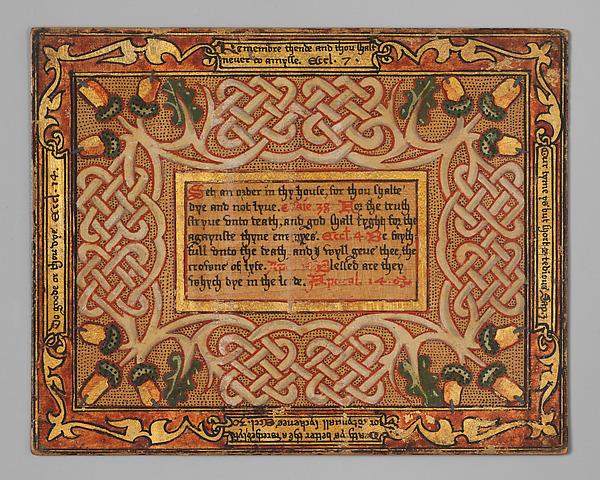 Remembre thende and thou shalt
never do amysse. Eccl. 7.
Set an order in thy house, for thou shalte
dye and not lyue. 38. For the truth
stryue vnto death, and god shall fyght for the
agaynste thyne enemyes. Eccl. 4. Be fayth
full vnto the death and I wyll geue thee, the
crowne of lyfe. Blessed are they
whych dye in the lorde. Apocal. 14.
Do goode er thou dye Eccl. 14.
Death ys better the a wretched lyfe
or contynuall syckenes Eccl. 30
Our tyme ys but